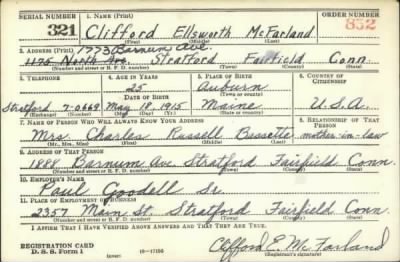 SERIAL NUMBER 1. NAME (Print) ORDER NUMBER
321 Clifford Ellsworth McFarland 832
(First) (Middle) (Last)
2. ADDRESS (Print) 1773 Barnum Ave.
1125 North Ave. Stratford Fairfield Conn.
(Number and street or R. F. D. number) (Town) (County) (State)
3. TELEPHONE 4. AGE IN YEARS 5. PLACE OF BIRTH 6. COUNTRY OF CITIZENSHIP
25 Auburn
DATE OF BIRTH (Town or county)
Stratford 7-0669 May 18, 1915 Maine U.S.A.
(Exchange) (No.) (Mo.) (Day) (Yr.) (State or country)
7. NAME OF PERSON WHO WILL ALWAYS KNOW YOUR ADDRESS 8. RELATIONSHIP OF THAT PERSON
Mrs. Charles Russell Bussette mother-in-law
(Mr., Mrs., Miss) (First) (Middle) (Last)
9. ADDRESS OF THAT PERSON
1888 Barnum Ave. Stratford Fairfield Conn.
(Number and street or R. F. D. number) (Town) (County) (State)
10. EMPLOYER'S NAME
Paul Goodell Sr
11. PLACE OF EMPLOYMENT OR BUSINESS
2357 Main St. Stratford Fairfield Conn.
(Number and street or R. F. D. number) (Town) (County) (State)
I AFFIRM THAT I HAVE VERIFIED ABOVE ANSWERS AND THAT THEY ARE TRUE.
REGISTRATION CARD
D. S. S. Form 1 (over) 16-17105 Clifford E. McFarland
(Registrant's signature)